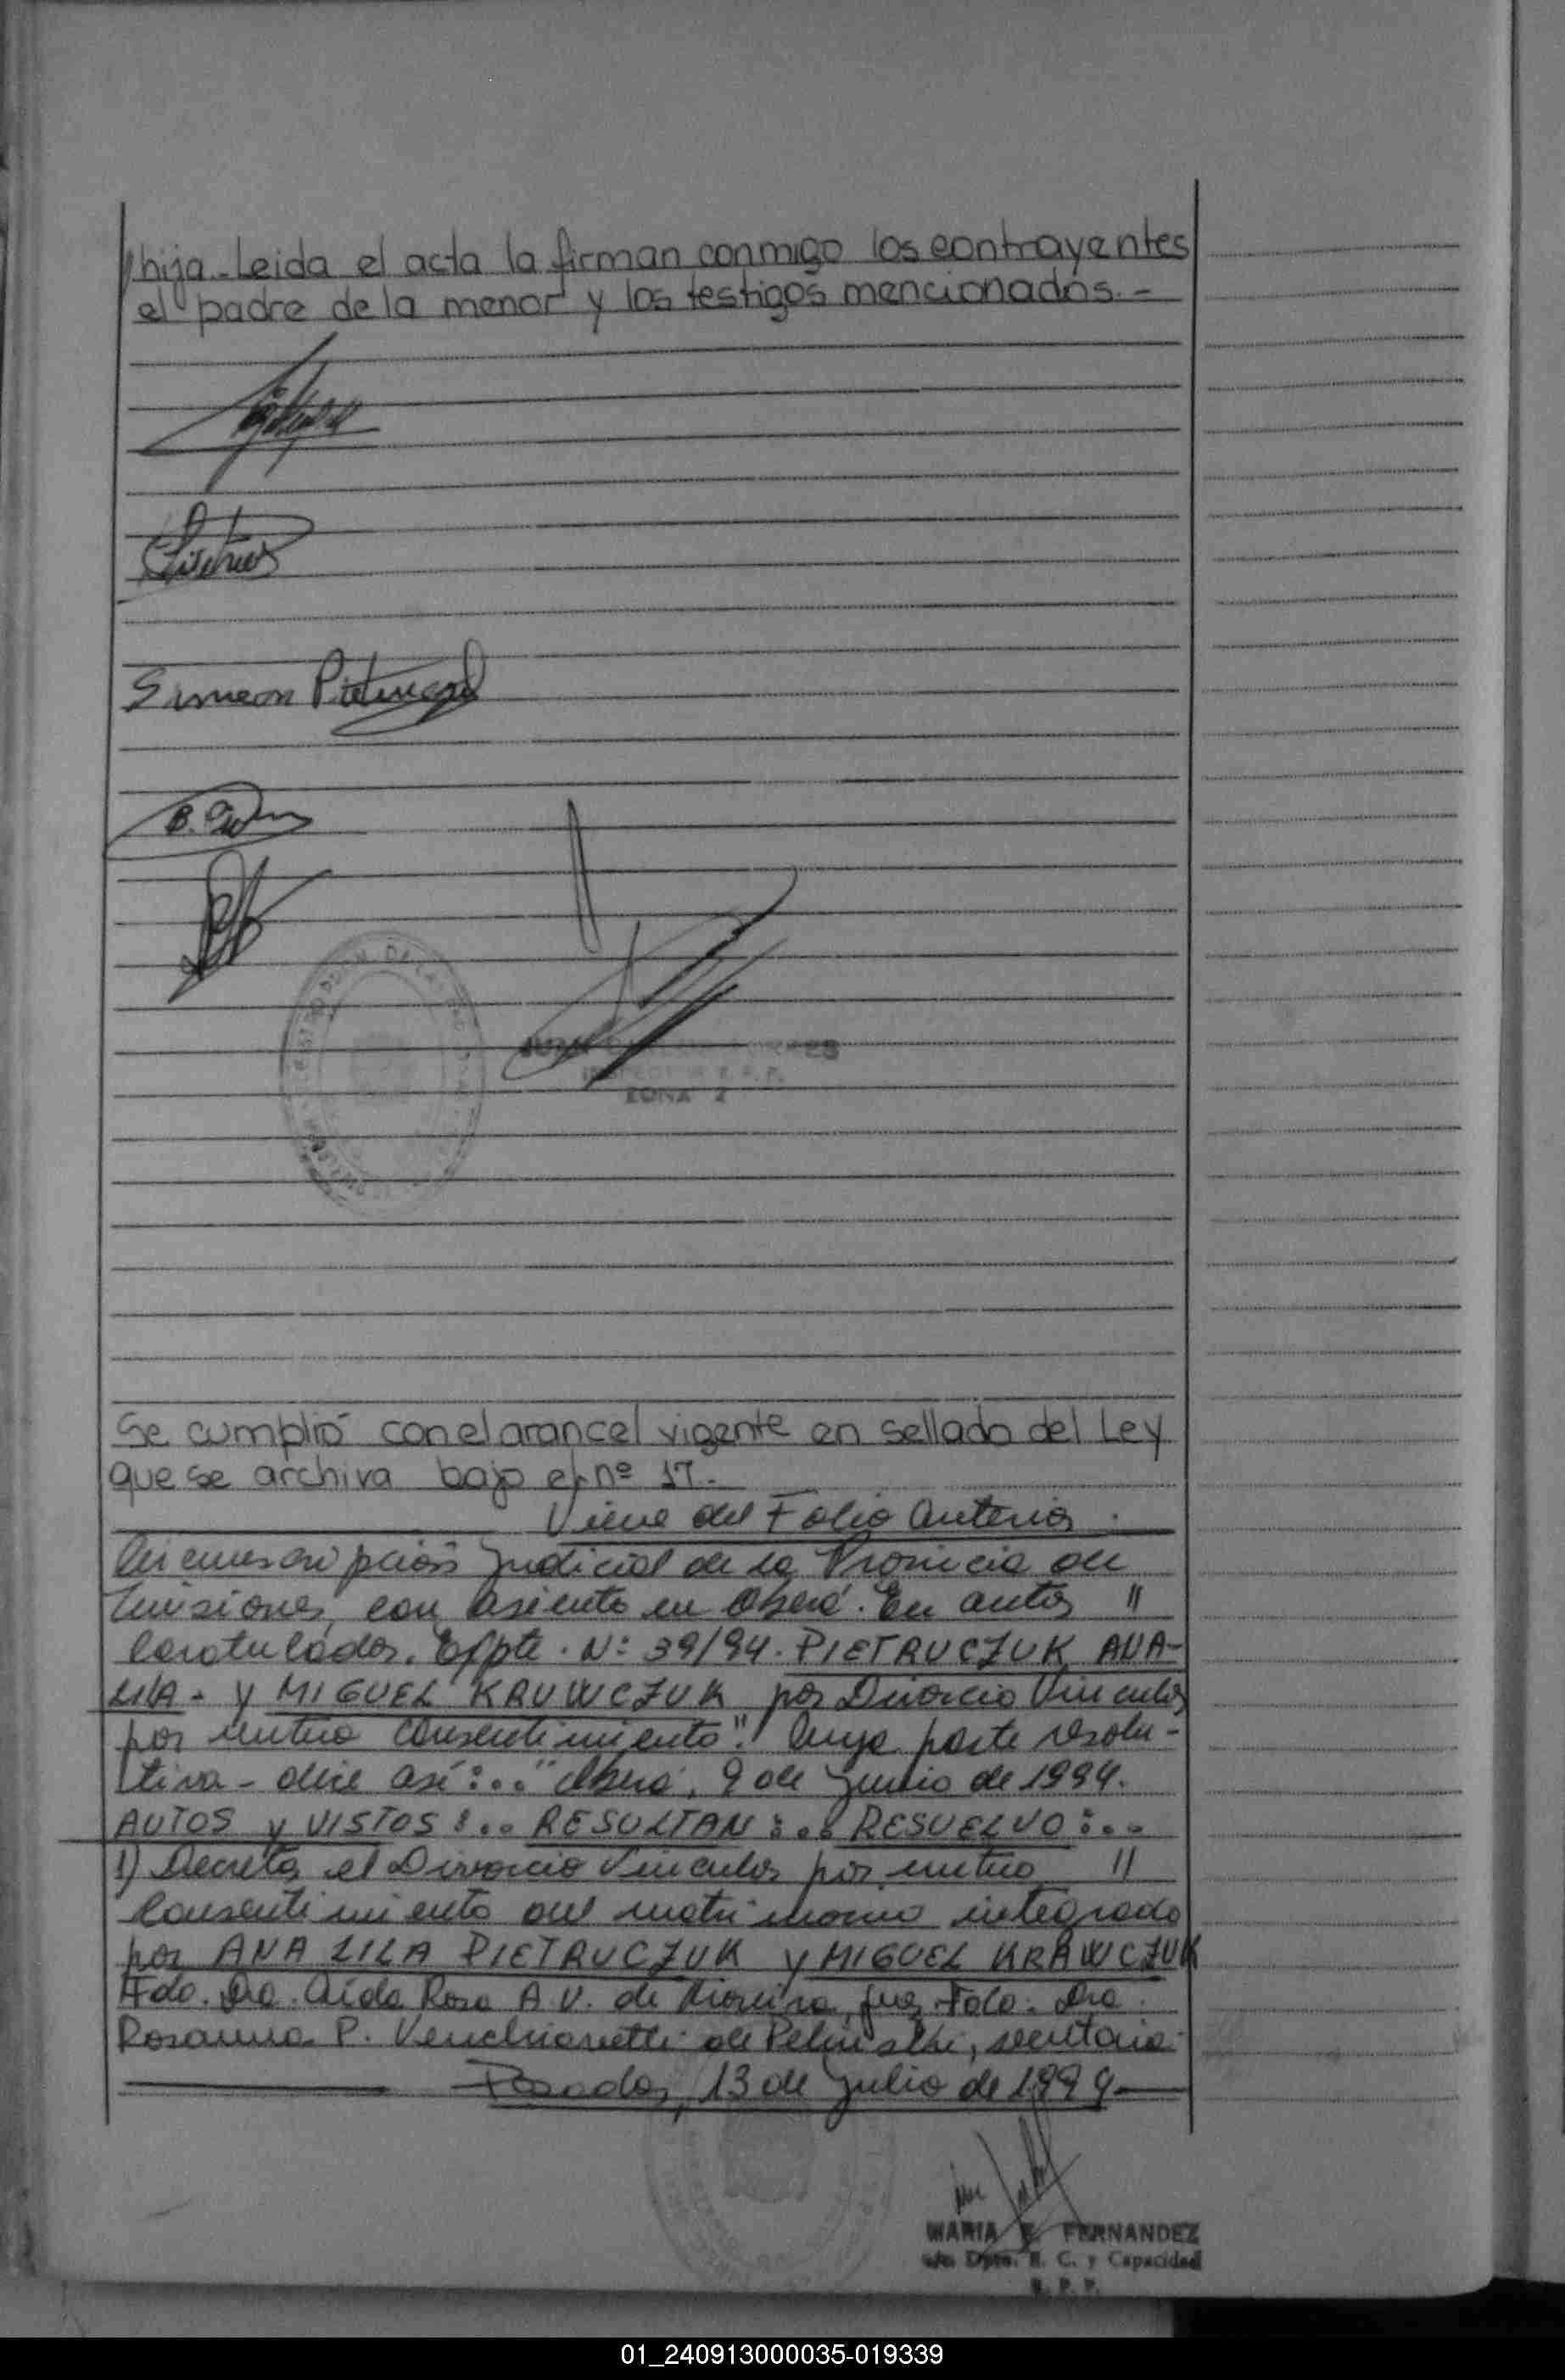 hija.- Leida el acta la firman conmigo los contrayentes
el padre de la menor y los testigos mencionados.-
Simeon
B.
ZONA 2
Se cumplió con el arancel vigente en sellado del Ley
que se archiva bajo el nº 17.-
Viene del Folio Anterior.
Circunscripción Judicial de la Provincia de
Misiones, con asiento en Oberá. En autos "
Caratulados. Expte. Nº 39/94. PIETRUCZUK ANA-
LILA - y MIGUEL KRUWCZUK por Divorcio Vincular
por mutuo Consentimiento". Cuya parte resolu-
tiva - dice así:.. "Oberá, 9 de Junio de 1994.
AUTOS y VISTOS:.. RESULTAN:.. RESUELVO:..
1) Decretar el Divorcio Vincular por mutuo "
Consentimiento del matrimonio integrado
por ANA LILA PIETRUCZUK y MIGUEL KRAWCZUK
Fdo. Dra. Aída Rosa A.V. de Moreira, Juez. Fdo. Dra.
Rosanna P. de secretaria.
Posadas, 13 de Julio de 1999
MARIA FERNANDEZ
Dpto. E. C. y Capacidad
R. P. P.
01_240913000035-019339